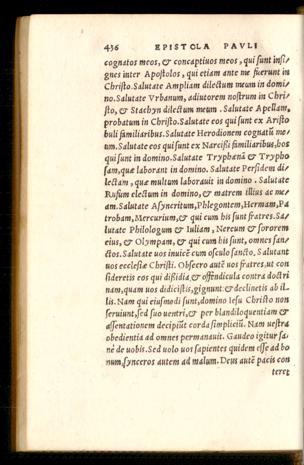 436 EPISTOLA PAVLI
cognatos meos, & concaptiuos meos, qui sunt insi⸗
gnes inter Apostolos, qui etiam ante me fuerunt in
Christo. Salutate Ampliam dilectum meum in domi⸗
no. Salutate Vrbanum, adiutorem nostrum in Chri⸗
sto, & Stachyn dilectum meum . Salutate Apellam,
probatum in Christo. Salutate eos qui sunt ex Aristo
buli familiaribus. Salutate Herodionem cognatũ me⸗
um. Salutate eos qui sunt ex Narcissi familiaribus, hos
qui sunt in domino. Salutate Tryphænã & Trypho
sam, quæ laborant in domino. Salutate Persidem di⸗
lectam, quæ multum laborauit in domino. Salutate
Rufum electum in domino, & matrem illius ac me⸗
am. Salutate Asyncritum, Phlegontem, Hermam, Pa
trobam, Mercurium, & qui cum his sunt fratres. Sa⸗
lutate Philologum & Iuliam, Nereum & sororem
eius, & Olympam, & qui cum his sunt, omnes san⸗
ctos. Salutate uos inuicẽ cum osculo sancto. Salutant
uos ecclesiæ Christi. Obsecro autẽ uos fratres, ut con
sideretis eos qui dissidia, & offendicula contra doctri
nam, quam uos didicistis, gignunt & declinetis ab il⸗
lis. Nam qui eiusmodi sunt, domino Iesu Christo non
seruiunt, sed suo uentri, & per blandiloquentiam &
assentationem decipiũt corda simpliciũ. Nam uestra
obedientia ad omnes permanauit. Gaudeo igitur sa⸗
nè de uobis. Sed uolo uos sapientes quidem esse ad bo
num, synceros autem ad malum. Deus autẽ pacis con
teret